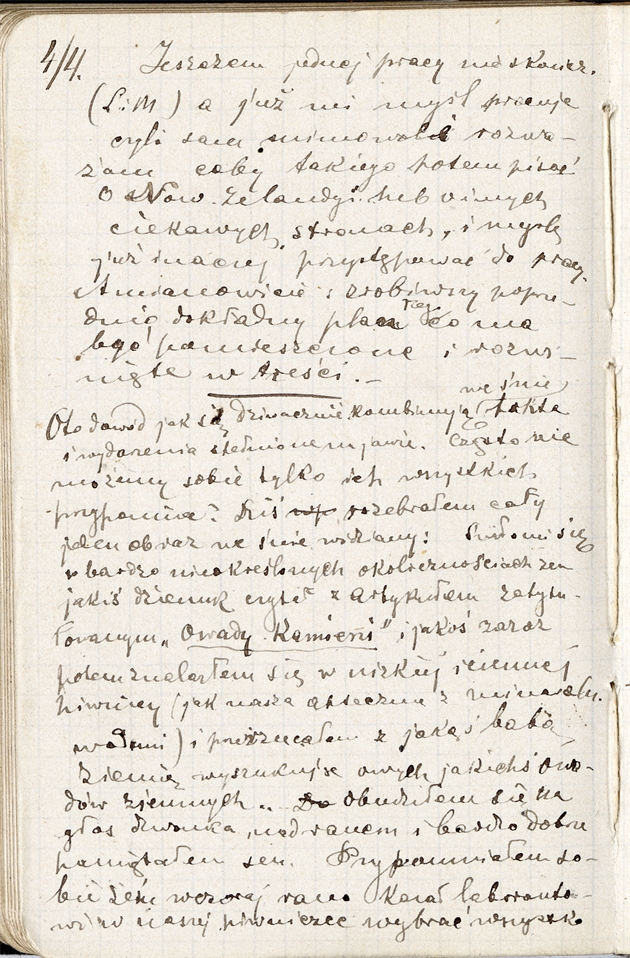 4/4. Jeszczem jednej pracy nie skończ.
(L.i.M) a już mi myśl pracuje
czyli sam mimowoli rozwa-
żam coby takiego potem pisać
O Now. Zelandyi lub o innych
ciekawych stronach, i myślę
już inaczej przystępować do pracy.
A mianowicie: zrobiwszy poprze-
dnio dokładny plan co ma
być pomieszczone i rozwi-
nięte w treści. –
Oto dowód jak się dziwacznie kombinują we śnie fakta
i wydarzenia spełnione na jawie. Często nie
możemy sobie tylko ich wszystkich
przypomnieć. Dziś rozebrałem cały
jeden obraz we śnie widziany: Śniło mi się
w bardzo nieokreślonych okolicznościach żem
jakiś dziennik czytał z artykułem zatytu-
łowanym "Owady Kamieni" i jakoś zaraz
potem znalazłem się w nizkiej ciemnej
piwnicy (jak nasza apteczna z minerałn.
wodami) i przerzucałem z jakąś babą
ziemię wyszukując owych jakichś owa-
dów ziemnych.. Obudziłem się na
głos dzwonka nad ranem i bardzo dobrze
pamiętałem sen. Przypomniałem so-
bie żem wczoraj rano kazał laboranto-
wi w naszej piwniczce wybrać wszystk.